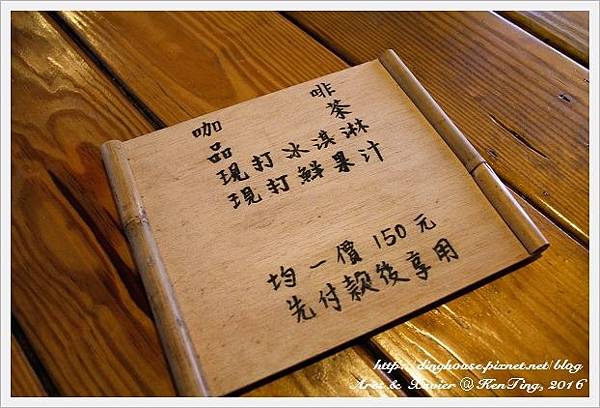 咖 啡
品 茶
現打冰淇淋
現打鮮果汁
均一價150元
先付款後享用
http://dinghouse.pixnet.net/blog
Ares & Xavier @ KenTing, 2016